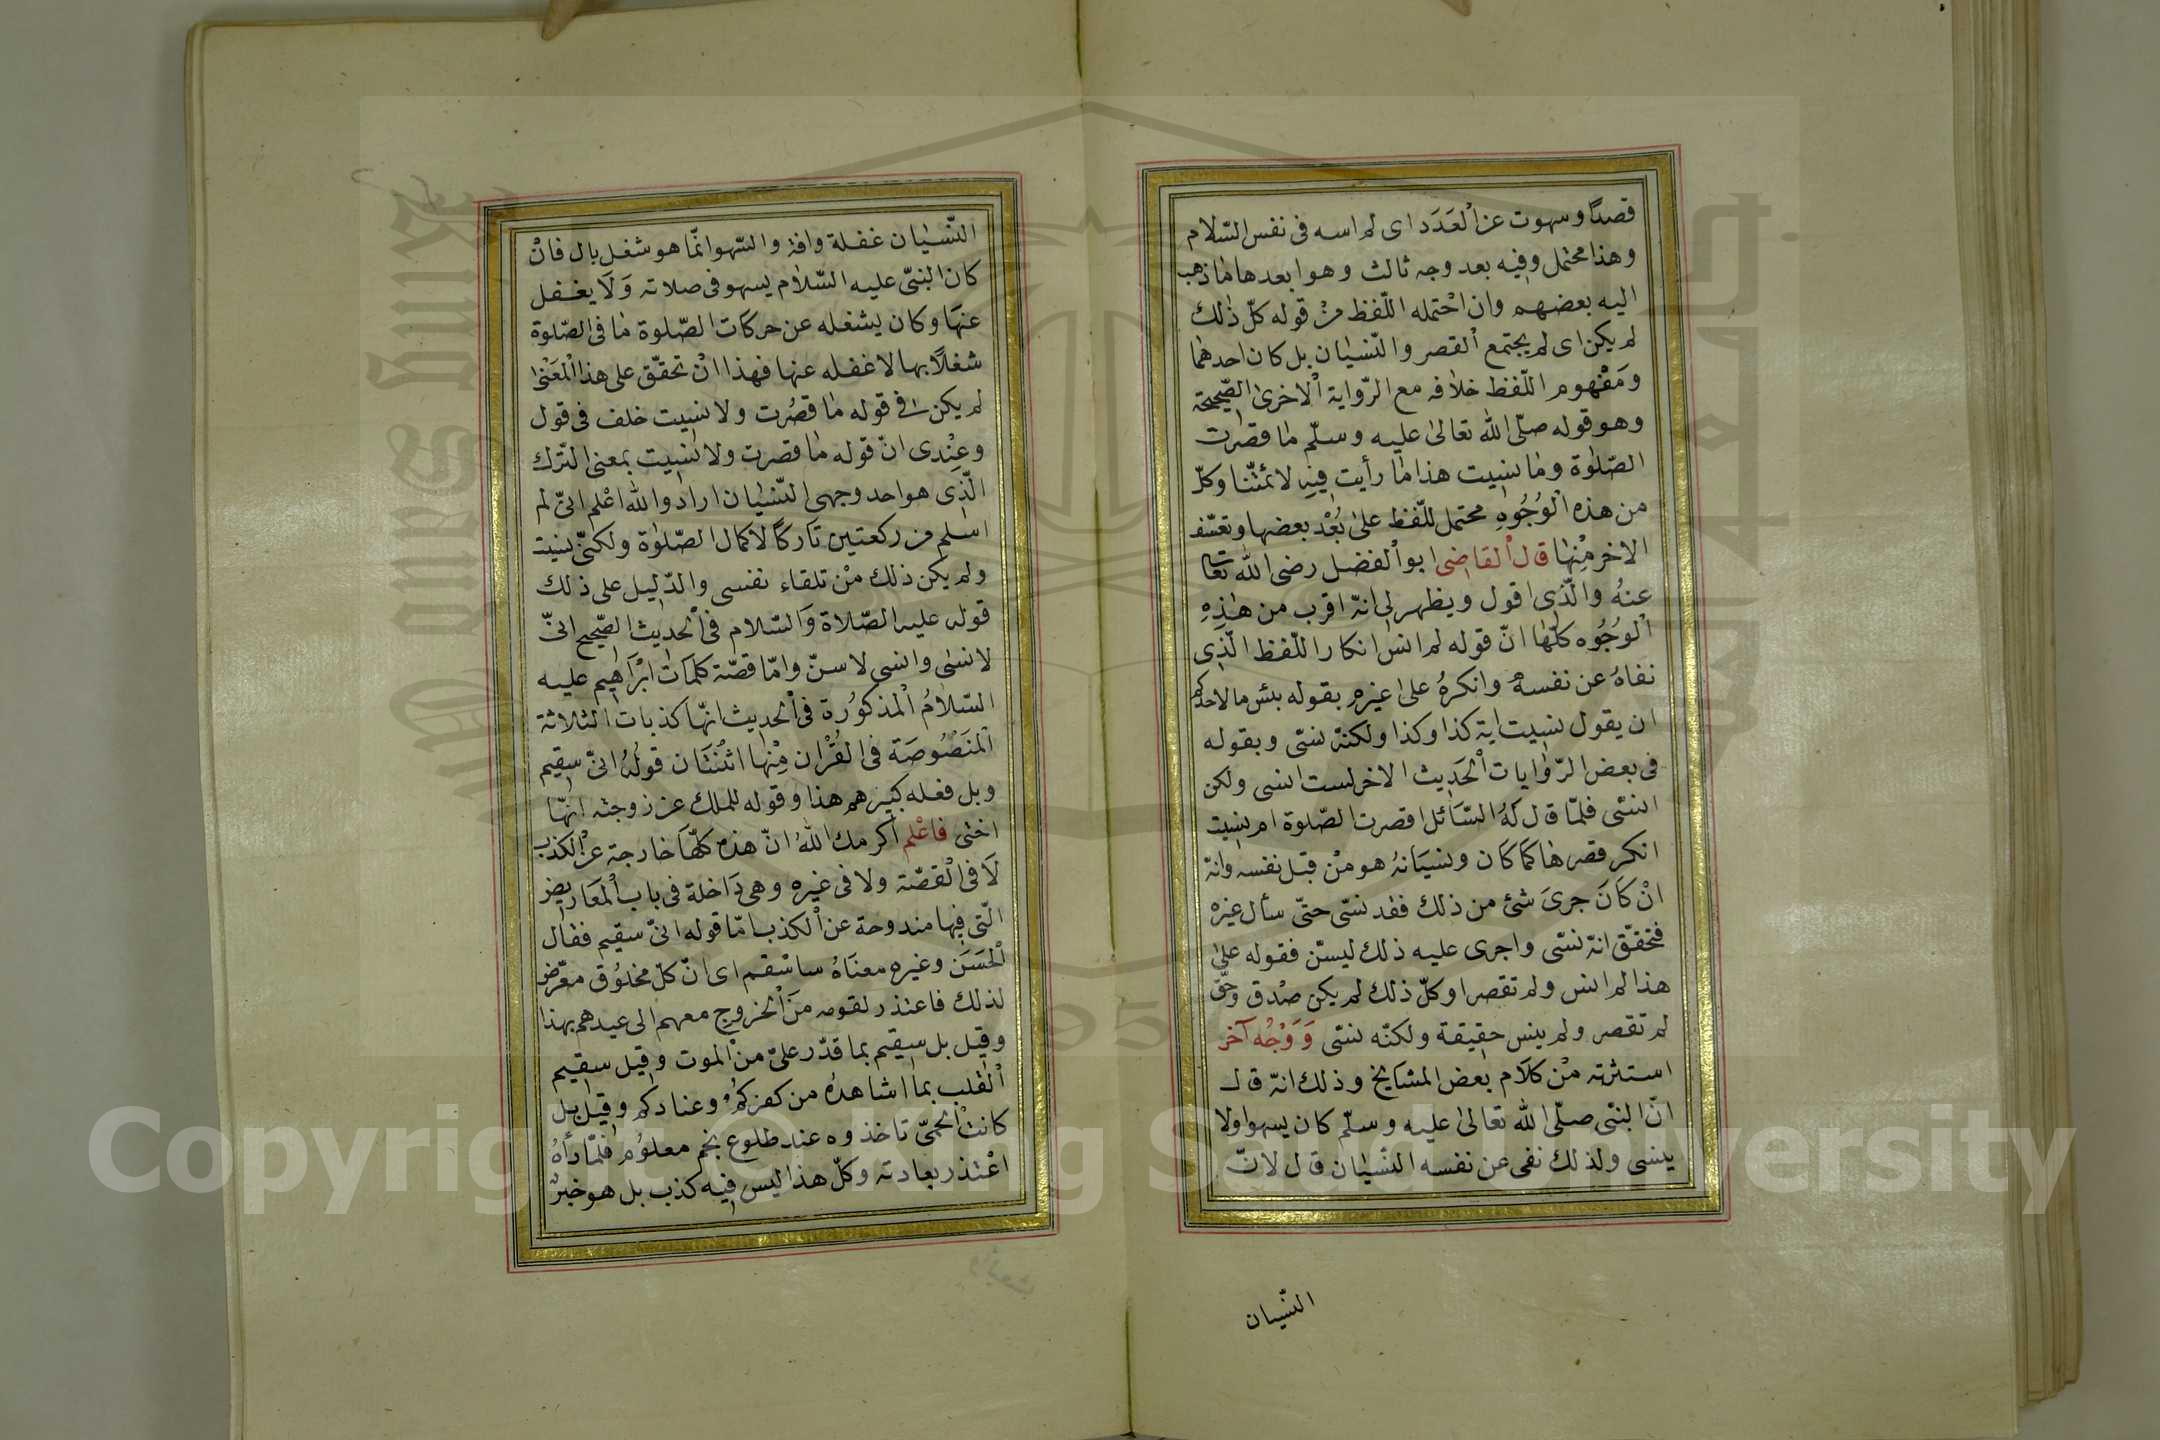 قصدًا وسهوت عن العَدَد اى لم اسه فى نفس السّلام
وهذا محتمل وفيه بعد وجه ثالث وهو ابعدها ما ذهب
اليه بعضهم وان احْتمله اللّفظ منْ قوله كلّ ذلك
لم يكن اى لم يجتمع القصر والنّسيان بل كان احدهما
ومَفْهوم اللّفظ خلافه مع الرّواية الاخرى الصّحيحة
وهو قوله صلّى الله تعالى عليه وسلّم ما قصرت
الصّلوة وما نسيت هذا ما رأيت فيه لائمّتنا وكلّ
من هذه الْوُجُوه محتمل للّفظ على بُعْد بعضها وتعسّف
الاخر مْنها قال القاضى ابو الفضل رضى الله تعا
عنهُ والّذى اقول ويظهر لى انّه اقرب من هذِهِ
الْوجُوُه كلّها انّ قوله لم انس انكار اللّفظ الّذى
نفاهُ عن نفسه وانكرهُ على غيره بقوله بئس ما لاحدكم
ان يقول نسيت اية كذا وكذا ولكنّه نسّى وبقوله
فى بعض الرّوايات الْحَديث الاخر لست انسى ولكن
انسّى فلمّا قال لَهُ السّائل اقصرت الصّلوة ام نسيت
انكر قصرها كمَا كَان ونسيَانهُ هو منْ قبل نفسه وانّه
انْ كَانَ جرىَ شئ من ذلك فقد نسّى حتّى سأل غيره
فتحقّق انّه نسّى واجرى عليه ذلك ليسّن فقوله على
هذا لم انس ولم تقصر او كلّ ذلك لم يكن صْدق وحقّ
لم تقصر ولم ينس حقيقة ولكنّه نسّى وَوَجْهُ آخر
استثرته منْ كلَام بعض المشايخ وذلك انّه قال
انّ النبّى صلّى الله تعالى عليه وسلّم كان يسهو اولا
ينسى ولذلك نفى عن نفسه النسّيان قال لانّ
النسّيان
النّسيان غفلة وافة والسّهو انّما هو شغل بال فانْ
كان النبّى عليه السّلام يسهو فى صلاته وَلَا يغفل
عنهَا وكان يشغله عن حركَات الصّلوة ما فى الصّلوة
شغلًا بها لا غفله عنها فهذا انْ تحقّق على هذا الْمعَنْى
لم يكن فى قوله ما قصُرت ولا نسيت خلف فى قول
وعِنْدى انّ قوله ما قصرت ولا نسيت بمعنى التّرك
الّذى هو احد وجهى النّسْيان اراد والله اعْلم انّى لم
اسلم من ركعتين تاركًا لاكمال الصّلوة ولكنّى نسيت
ولم يكن ذلك منْ تلقاء نفسى والدّليل على ذلك
قوله عليه الصّلاة وَالسّلام فى الْحديث الصّحيح انّى
لانسى وانسى لاسنّ وامّا قصّة كلمَات ابْرَاهيم عليه
السّلامُ الْمذكوُرة فى الْحديث انهّا كذبات الثلاثة
الْمنَصْوُصَة فى القُرْان مِنْها اثْنتَان قولُهُ انىّ سقيم
وبل فعله كبيرهم هذا وقوله للملك عن زوجته انهّا
اختى فاعْلم اكرمك اللهُ انّ هذه كلّهَا خارجة عن الْكذب
لَا فى الْقصّة ولا فى غيره وهى دَاخلة فى باب الْمعَاريض
الّتى فيها مندوحة عن الْكذب امّا قوله انىّ سقيم فقال
الْحَسَن وغيره معنَاهُ ساسْقم اى انّ كلّ مخلوُق معرّض
لذلك فاعتذر لقومه مَن الْخروج معهم الى عيدهم بهذا
وقيل بل سقيم بما قدّر علىّ من الْموت وقيل سقيم
الْقلب بما اشاهدهُ من كفركمُْ وعنادكم وقيل بل
كانتْ الْحمىّ تاخذوه عند طلوع نجم معلوُم فلّما رأهُ
اعْتذر بعادته وكلّ هذا ليس فيه كذب بل هو خبرٌ
Copyright © King Saud University